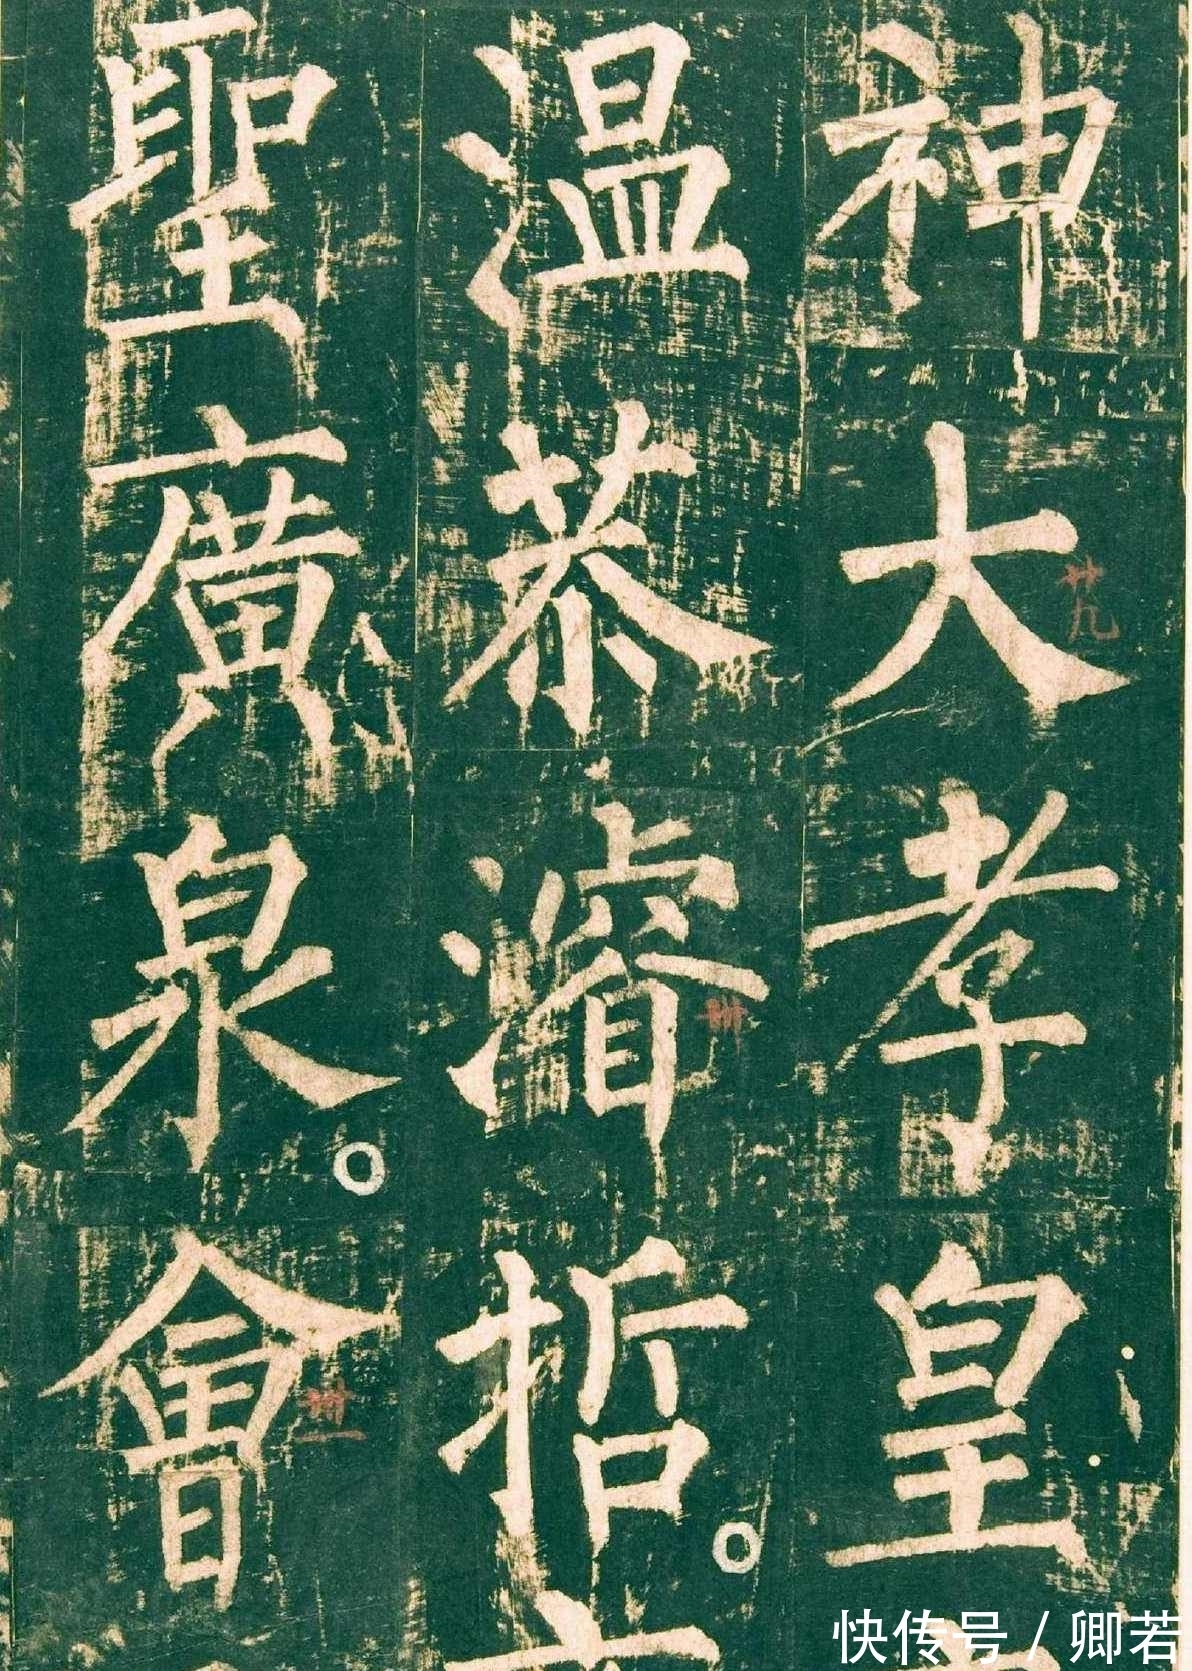 神大孝皇
溫恭濬哲
聖廣泉會
廿九
卅
卅一
快传号 / 卿若